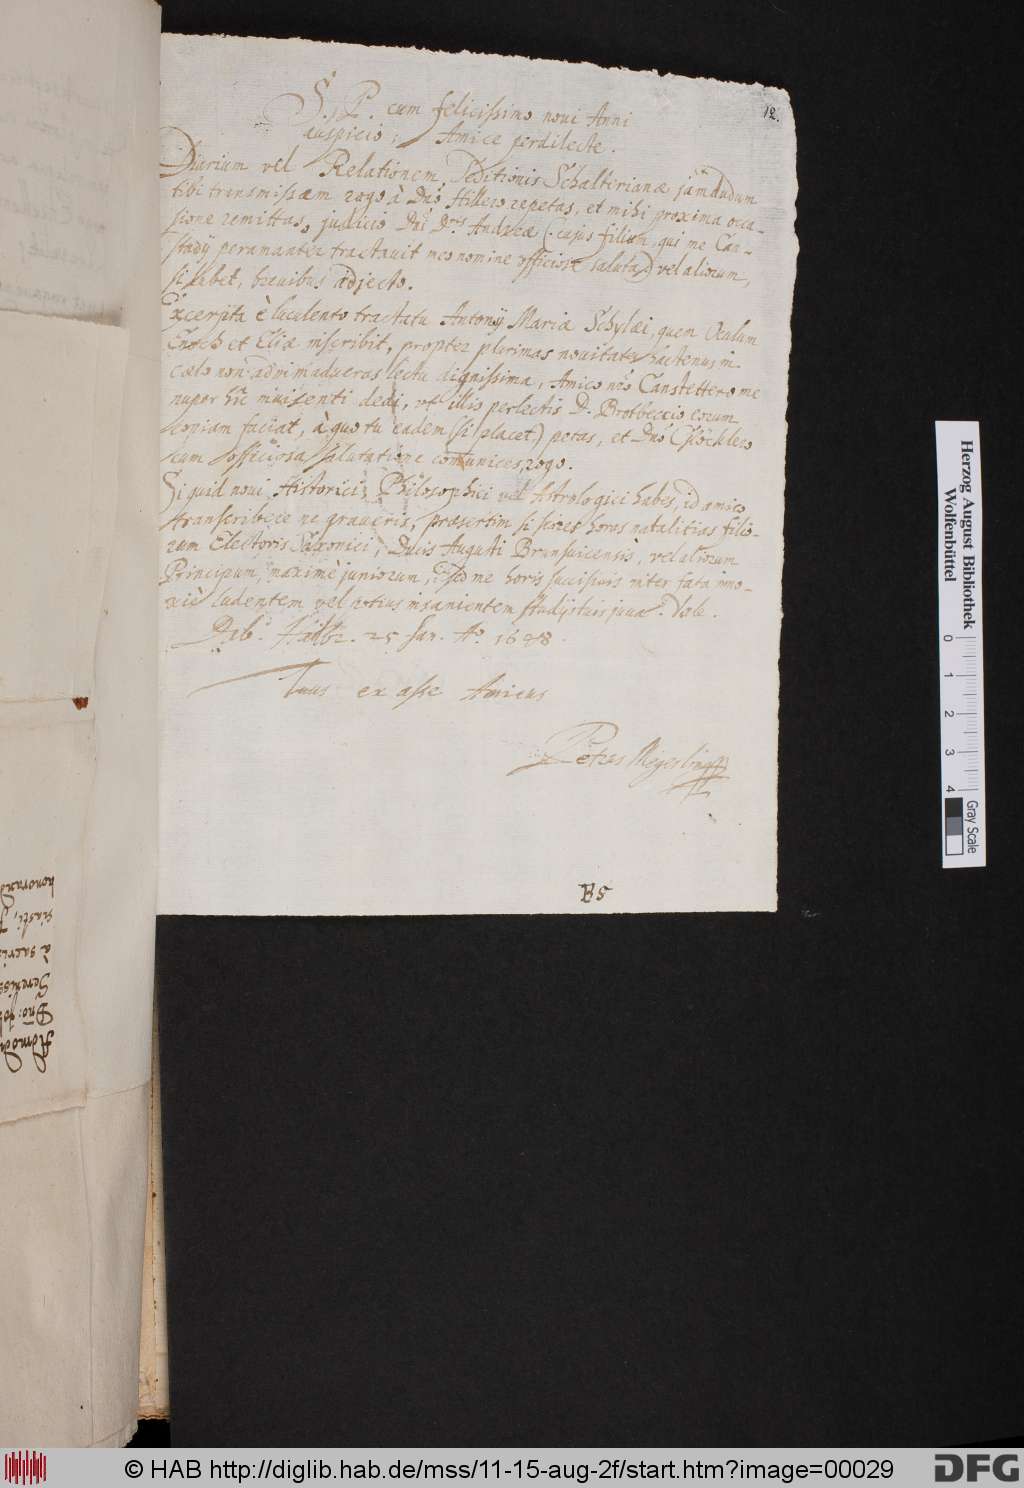 12.
S. P. cum felicissimo novi Anni
auspicio, Amice perdilecte.
Diarium vel Relationem Seditionis Schalterianæ jamdudum
tibi transmissam rogo à Dnō Hillero repetas, et mihi proxima occa-
sione remittas, judicio Dnī Dris Andreæ (cujus filium, qui me Can-
stadÿ peramanter tractavit meo nomine officiose saluta) vel aliorum,
si lubet, brevibus adjecto.
Excerpta è luculento tractatu Antonÿ Mariæ Schylæi, quem Oculum
Enoch et Eliæ inscribit, propter plurimas novitates hactenus in
cælo non animadversas lectu dignissima, Amico nrō Canstettero me
nuper hîc invisenti dedi, ut illis perlectis D. Brotbeccio eorum
copiam faciat, à quo tu eadem (si placet) petas, et Dnō Glöcklero
cum officiosa salutatione communices, rogo.
Si quid novi Historici, Philosophici vel Astrologici habes, id amico
transcribere ne graveris, præsertim si scires horas natalitias filio-
rum Electoris Saxonici, Ducis Augusti Brunsuicensis, vel aliorum
Principum, maximè juniorum, sed me horis succisivis inter fata inno-
xiè ludentem vel potius insanientem studÿs tuis juva. Vale.
25 Jan. Ao. 1648.
Tuus ex asse Amicus
Petrus Megerlin
B5
honorand
à sacri
Sereniss
Dnō: Joh
Admod
Herzog August Bibliothek
Wolfenbüttel
0 1 2 3 4
Gray Scale
© HAB http://diglib.hab.de/mss/11-15-aug-2f/start.htm?image=00029
DFG